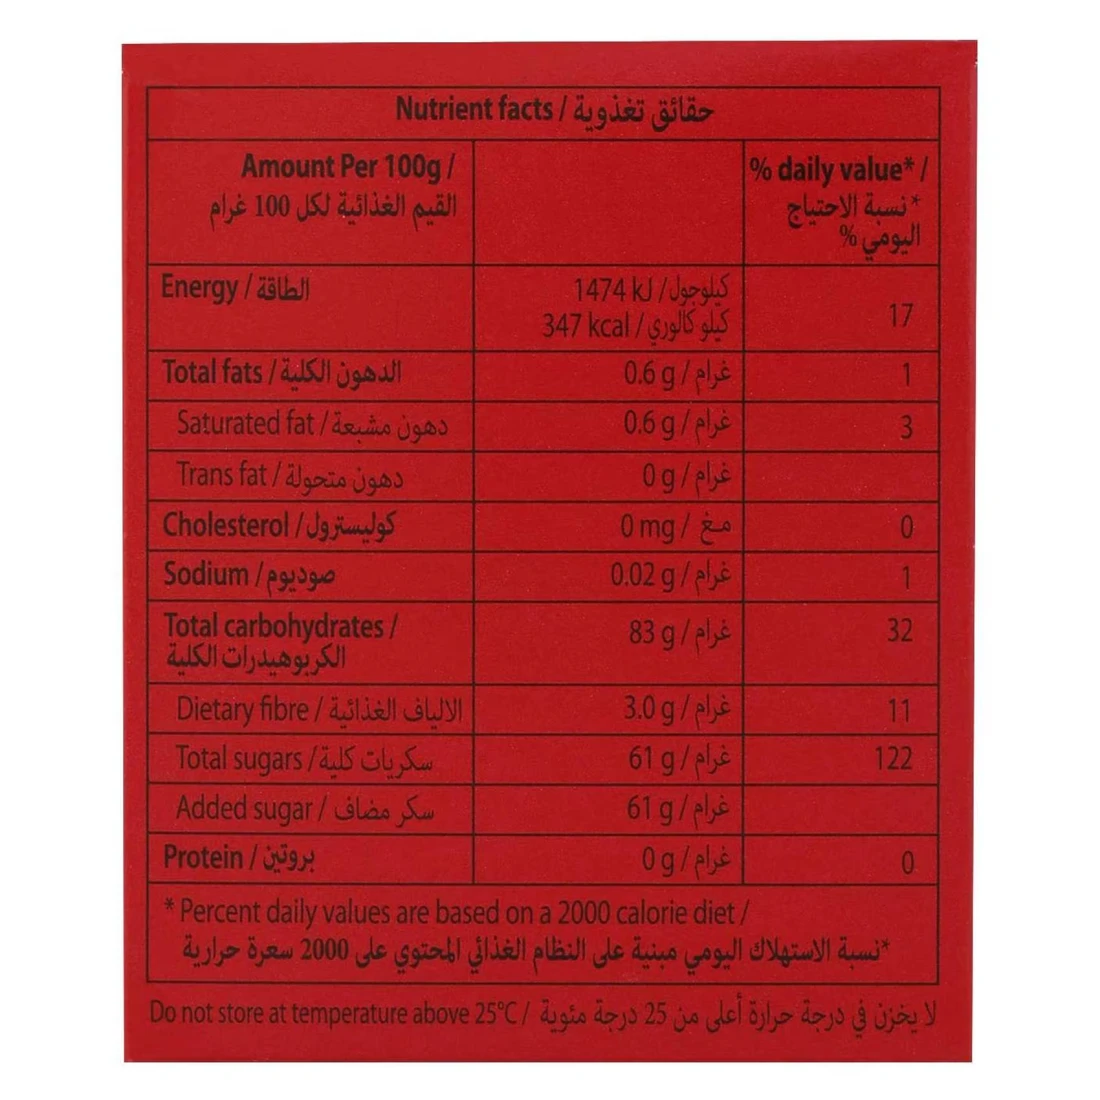 Nutrient facts / حقائق تغذوية
Amount Per 100g /
القيم الغذائية لكل 100 غرام
% daily value* /
*نسبة الاحتياج
اليومي %
Energy / الطاقة
1474 kJ / كيلوجول
347 kcal / كيلو كالوري
17
Total fats / الدهون الكلية
0.6 g / غرام
1
Saturated fat / دهون مشبعة
0.6 g / غرام
3
Trans fat / دهون متحولة
0 g / غرام
Cholesterol / كوليسترول
0 mg / مغ
0
Sodium / صوديوم
0.02 g / غرام
1
Total carbohydrates /
الكربوهيدرات الكلية
83 g / غرام
32
Dietary fibre / الالياف الغذائية
3.0 g / غرام
11
Total sugars / سكريات كلية
61 g / غرام
122
Added sugar / سكر مضاف
61 g / غرام
Protein / بروتين
0 g / غرام
0
* Percent daily values are based on a 2000 calorie diet /
*نسبة الاستهلاك اليومي مبنية على النظام الغذائي المحتوي على 2000 سعرة حرارية
Do not store at temperature above 25°C / لا يخزن في درجة حرارة أعلى من 25 درجة مئوية